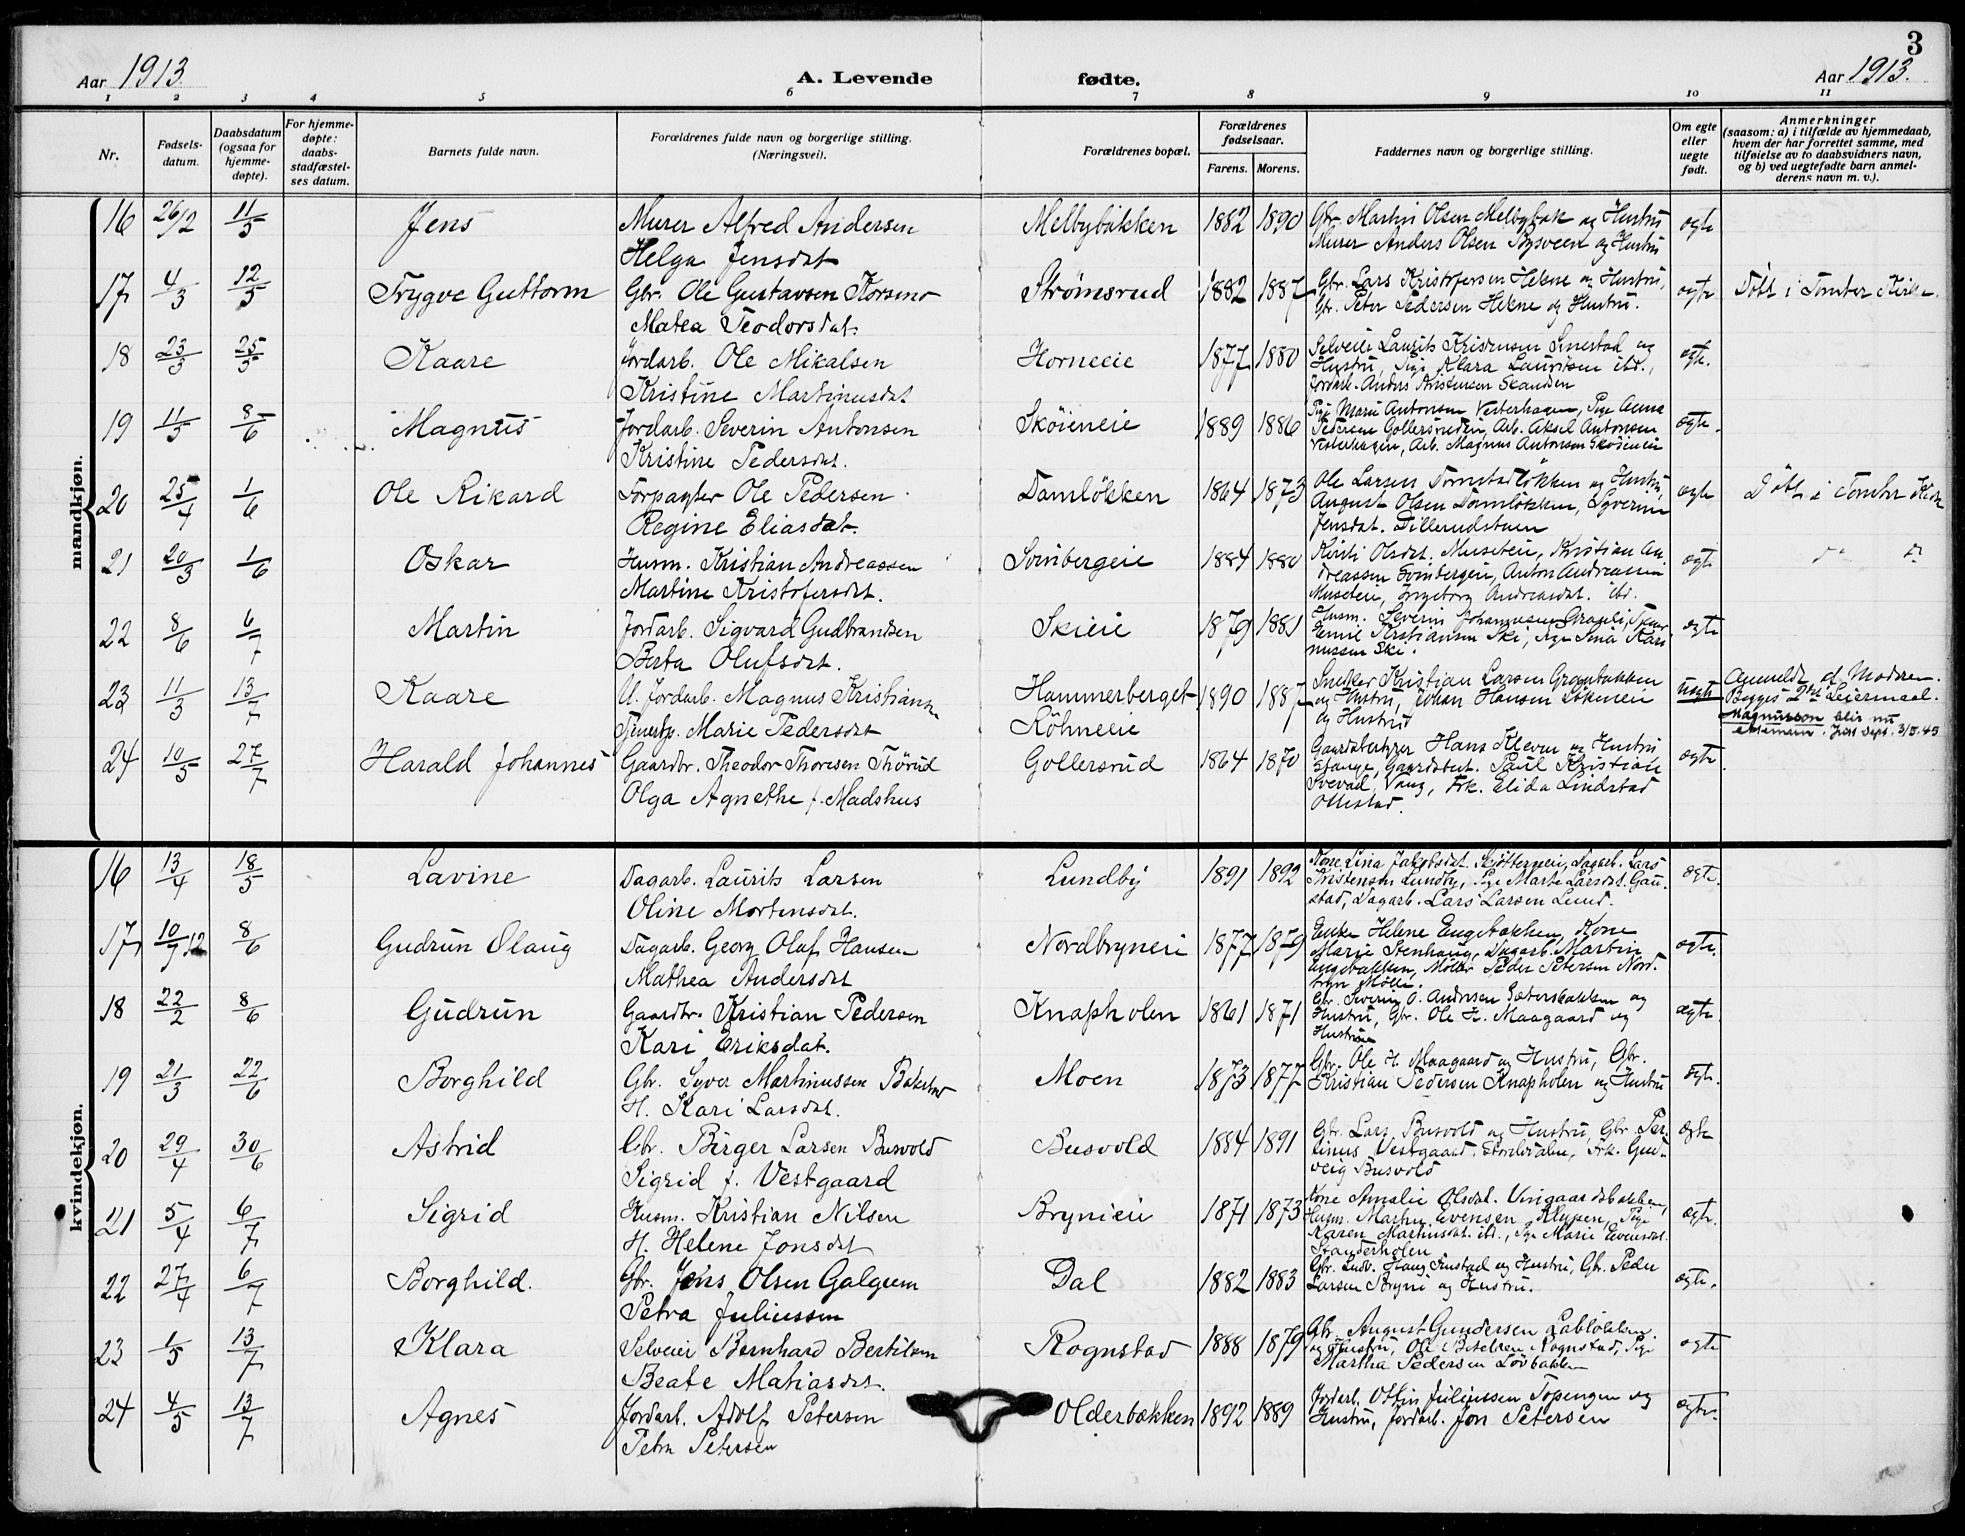 3
Aar 1913.
A. Levende fødte.
Aar 1913.
1 2 3 4 5 6 7 8 9 10 11
Nr.
Fødsels-
datum.
Daabsdatum
(ogsaa for
hjemme-
døpte).
For hjemme-
døpte:
daabs-
stadfæstel-
ses datum.
Barnets fulde navn.
Forældrenes fulde navn og borgerlige stilling.
(Næringsvei).
Forældrenes bopæl.
Forældrenes
fødselsaar.
Farens. Morens.
Faddernes navn og borgerlige stilling.
Om egte
eller
uegte
født.
Anmerkninger
(saasom: a) i tilfælde av hjemmedaab,
hvem der har forrettet samme, med
tilføielse av to daabsvidners navn,
og b) ved uegtefødte barn anmel-
derens navn m. v.).
mandkjøn.
16 26/2 11/5 Jens Murer Alfred Andersen Melbybakken 1882 1890 Gbr. Martin Olsen Melbybak og Hustru egte
Helga Jensdat Murer Anders Olsen og Hustru
17 4/3 12/5 Trygve Guttorm Gbr. Ole Gustavsen Korsmo Strømsrud 1882 1887 Gbr. Lars Kristofersen Hekne og Hustru, egte Døbt i Tomter Kirke.
Matea Teodorsdat. Gbr. Peter Pedersen Hekne og Hustru.
18 23/3 25/5 Kaare Jordarb. Ole Mikalsen Horneeie 1877 1880 Selveier Laurits Kristensen Smestad og egte.
Kristine Martinusdat Hustru, Pige Klara Lauritsen ibd.,
Jordarb. Anders Kristensen Skanden
19 11/5 8/6 Magnus Jordarb. Severin Antonsen Skøieneie 1889 1886 Pige Marie Antonsen Vesterhagen, Pige Anna egte.
Kristine Pedersdat. Pedersen Arb. Aksel Antonsen
Vesterhagen, Arb. Magnus Antonsen Skøieneie
20 25/4 1/6 Ole Rikard Forpagter Ole Pedersen Damløkken 1864 1873 Ole Larsen og Hustru, egte Døbt i Tomter Kirke
Regine Eliasdat. August Olsen Damløkken, Syverine
Jensdat. Dillerudstuen
21 20/3 1/6 Oskar Husm. Kristian Andreassen Svinbergeie 1884 1880 Kirsti Olsdat. Museteie, Kristian An- egte
Martine Kristofersdat. dreassen Svinbergeie, Anton Andreassen
Museteie, Ingeborg Andreasdat. ibd.
22 8/6 6/7 Martin Jordarb. Sigvard Gudbrandsen Skieie 1879 1881 Husm. Severin Johannesen egte
Berta Olufsdat. Emil Kristiansen Ski, Pige Sina Ras-
mussen Ski.
23 11/3 13/7 Kaare U. Jordarb. Magnus Kristians. Hammerberget 1890 1887 Snekker Kristian Larsen Granbakken uegte Anmeldt af Moderen.
Tjenestp. Marie Pedersdat Köhneeie og Hustru, Johan Hansen og Hustru Begges 2det Leiermaal.
Magnusson blir nu
3/5.45
24 10/5 27/7 Harald Johannes Gaardbr. Theodor Thoresen Thörud Gollersrud 1864 1870 Gaardsbestyrer Hans Klever og Hustru egte
Olga Agnethe f. Madshus Stange, Gaardsbest. Paul Kristian
Svevad, Vang, Frk. Elida Lindstad
Ottestad.
kvindekjøn.
16 13/4 18/5 Lavine Dagarb. Laurits Larsen Lundby 1891 1892 Kone Lina Jakobsdat. Dagarb. Lars egte.
Oline Mortensdat. Kristensen Lundby, Pige Marte Larsdat. Gau-
stad, Dagarb. Lars Larsen Lund.
17 10/7 12 8/6 Gudrun Olaug Dagarb. Georg Olaf Hansen Nordbryneei 1877 1879 Enke Helene Engebakken, Kone egte.
Mathea Andersdat Marie Stenhaug, Dagarb. Martin
Engebakken, Møller Peder Petersen Nord-
bryn Mølle.
18 22/2 8/6 Gudrun Gaardbr. Kristian Pedersen Knapholen 1861 1871 Gbr. Severin O. Andersen Sætersbakken og egte.
Kari Eriksdat. Hustru, Gbr. Ole H. Maagaard og
Hustru
19 21/3 22/6 Borghild Gbr. Syver Martinussen Bakstad Moen 1873 1877 Gbr. Ole H. Maagaard og Hustru, Gbr. egte.
H. Kari Larsdat. Kristian Pedersen Knapholen og Hustru
20 29/4 30/6 Astrid Gbr. Birger Larsen Busvold Busvold 1884 1891 Gbr. Lars Busvold og Hustru, Gbr. Per- egte
Sigrid f. Vestgaard linus Vestgaard, Storelvdalen, Frk. Gud-
veig Busvold
21 5/4 6/7 Sigrid Husm. Kristian Nilsen Brynieie 1871 1873 Kone Amalie Olsdat. Vingaardsbakken, egte.
H. Helene Jonsdat Husm. Martin Evensen Klypen, Pige
Karen Martinusdat. ibd., Pige Marie Evensdat.
Standerholen
22 27/4 6/7 Borghild. Gbr. Jens Olsen Galgum Dal 1882 1883 Gbr. Ludv. Hans og Hustru, Gbr. Peder egte.
Petra Juliussen Larsen Bryni og Hustru.
23 1/5 13/7 Klara Selveier Bernhard Bertilsen Rognstad 1888 1879 Gbr. August Gundersen Labløkken egte
Beate Matiasdat. og Hustru, Ole Bertelsen Rognstad, Pige
Martha Pedersen Løvbakken
24 4/5 13/7 Agnes Jordarb. Adolf Petersen Olderbakken 1892 1889 Jordarb. Ottin Juliussen Topengen og egte.
Petra Petersen Hustru, Jordarb. Jon Petersen